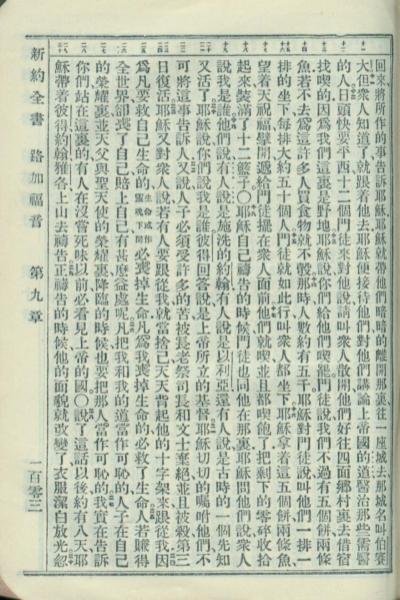 回來、將所作的事告訴耶穌、耶穌就帶他們暗暗的離開那裏、往一座城去、那城名叫伯賽
大、但衆人知道了、就跟着他去、耶穌便接待他們、對他們講論上帝國的道、醫治那些需醫
的人、日頭快要平西、十二個門徒來對他說、請叫衆人散開、他們好往四面鄉村裏去借宿
找喫的、因爲我們這裏是野地、耶穌說、你們給他們喫罷、門徒說、我們不過有五個餅兩條
魚、若不去爲這許多人買食物、就不彀、那時人數約有五千、耶穌對門徒說、叫他們一排一
排的坐下、每排大約五十個人、門徒就如此行、叫衆人都坐下、耶穌拿着這五個餅兩條魚、
望着天祝福、擘開、遞給門徒、擺在衆人面前、他們就喫、並且都喫飽了、把剩下的零碎收拾
起來、裝滿了十二籃子〇耶穌自己禱告的時候、門徒也同他在那裏、耶穌問他們說、衆人
說我是誰、他們說、有人說是施洗的約翰、有人說是以利亞、還有人說是古時的一個先知
又活了、耶穌說、你們說我是誰、彼得回答說、是上帝所立的基督、耶穌切切的囑咐他們、不
可將這事告訴人、又說、人子必須受許多的苦、被長老祭司長和文士棄絕、並且被殺、第三
日復活、耶穌又對衆人說、若有人要跟從我、就當捨己、天天背起他的十字架來跟從我、因
爲凡要救自己生命的、生命或作靈魂下同必喪掉生命、凡爲我喪掉生命的、必救了生命、人若賺得
全世界、卻喪了自己、賠上自己、有甚麼益處呢、凡把我和我的道當作可恥的、人子在自己
的榮耀裏、並天父與聖天使的榮耀裏、降臨的時候、也要把那人當作可恥的、我實在告訴
你們、站在這裏的、有人在沒嘗死味以前、必看見上帝的國〇說了這話以後、約有八天、耶
穌帶着彼得約翰雅各、上山去禱告、正禱告的時候、他的面貌就改變了、衣服潔白放光、忽
新約全書 路加福音 第九章 一百零三